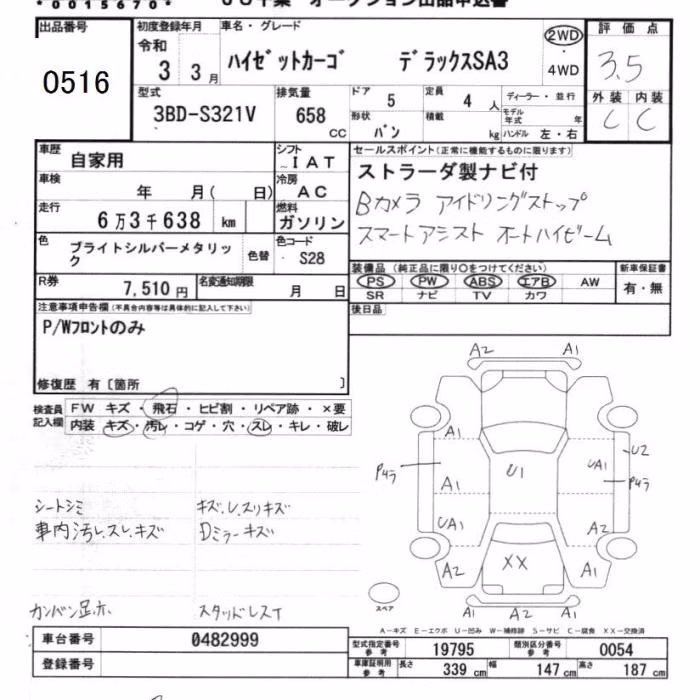 *0015670*
出品番号
0516
初度登録年月
令和
3 3月
車名・グレード
ハイゼットカーゴ デラックスSA3
2WD
・
4WD
評価点
3.5
外装 内装
C C
型式
3BD-S321V
排気量
658 CC
ドア 5
定員 4 人
形状 バン
積載 kg
ディーラー・並行
モデル年式 年
ハンドル 左・右
車歴
自家用
シフト
IAT
車検
年 月( 日)
冷房
AC
走行
6万3千638 km
燃料
ガソリン
色
ブライトシルバーメタリック
色替
色コード
S28
R券 7,510円
名変通知期限 月 日
セールスポイント(正常に機能するものに限ります)
ストラーダ製ナビ付
Bカメラ アイドリングストップ
スマートアシスト オートハイビーム
装備品(純正品に限り○をつけてください)
PS PW ABS エアB AW
SR ナビ TV カワ
新車保証書
有・無
後日品
注意事項申告欄(不具合内容等は具体的に記入して下さい)
P/Wフロントのみ
修復歴 有〔箇所 〕
検査員
記入欄
FW キズ・飛石・ヒビ割・リペア跡・×要
内装 キズ・汚レ・コゲ・穴・スレ・キレ・破レ
シートシミ
車内汚レ、スレ、キズ
キズ、レ、スリキズ
Dミラーキズ
スタッドレスT
A2 A1
A1
U1
UA1
U2
P4ラ
P4ラ
A1
UA1
A2
XX
A2
A1
A1 A2 A1
スペア
A-キズ E-エクボ U-凹み W-補修跡 S-サビ C-腐食 XX-交換済
車台番号 0482999
登録番号
型式指定番号 参考 19795
類別区分番号 参考 0054
車庫証明用 参考
長さ 339 cm
幅 147 cm
高さ 187 cm